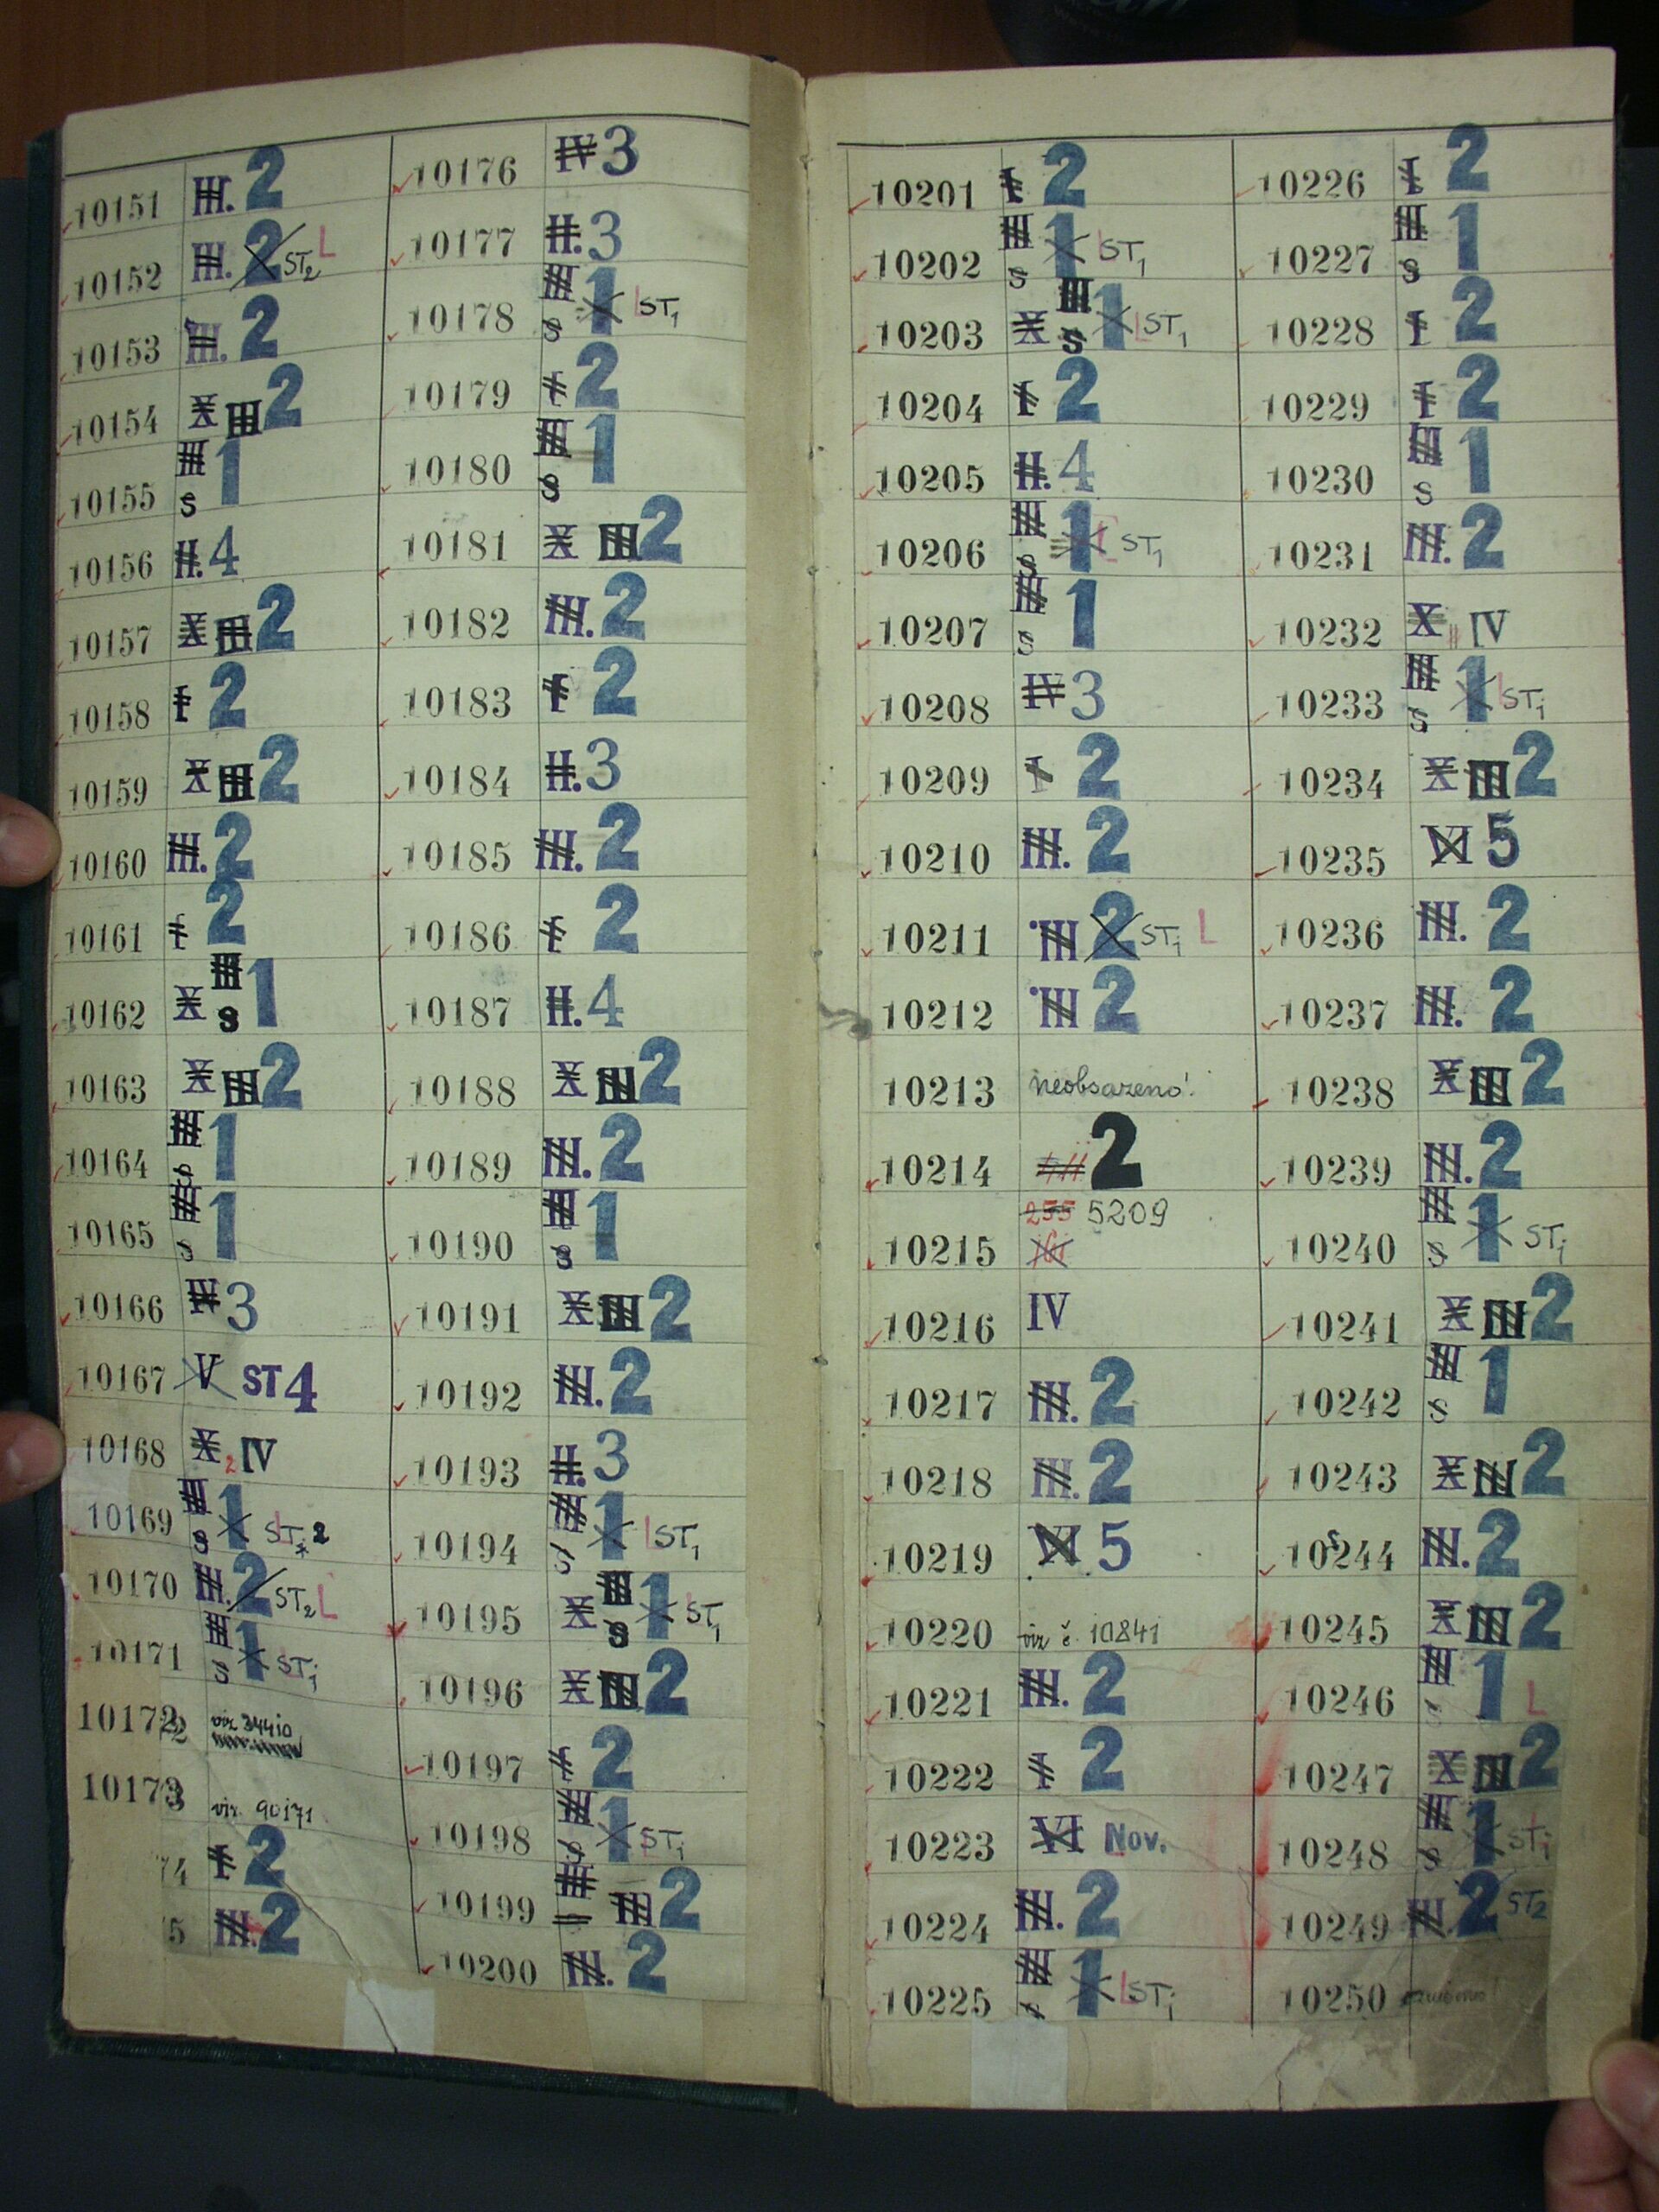 10151 III. 2
10152 III. 2 ST2 L
10153 III. 2
10154 X III 2
10155 III S 1
10156 II. 4
10157 X III 2
10158 I 2
10159 X III 2
10160 III. 2
10161 I 2
10162 X III S 1
10163 X III 2
10164 III S 1
10165 III S 1
10166 IV 3
10167 V ST 4
10168 X 2 IV
10169 III S 1 L ST 2
10170 III. 2 ST2 L
10171 III S 1 ST1
10172 viz 34410
10173 viz. 90171
74 I 2
5 III. 2
10176 IV 3
10177 II. 3
10178 III S 1 L ST1
10179 I 2
10180 III S 1
10181 X III 2
10182 III. 2
10183 I 2
10184 II. 3
10185 III. 2
10186 I 2
10187 II. 4
10188 X III 2
10189 III. 2
10190 III S 1
10191 X III 2
10192 III. 2
10193 II. 3
10194 III S 1 L ST1
10195 X III S 1 L ST1
10196 X III 2
10197 I 2
10198 III S 1 ST1
10199 III III 2
10200 III. 2
10201 I 2
10202 III S 1 L ST1
10203 X III S 1 L ST1
10204 I 2
10205 II. 4
10206 III S 1 L ST1
10207 III S 1
10208 IV 3
10209 I 2
10210 III. 2
10211 III 2 ST1 L
10212 III 2
10213 neobsazeno!
10214 2
10215 255 5209
10216 IV
10217 III. 2
10218 III. 2
10219 VI 5
10220 viz č. 10841
10221 III. 2
10222 I 2
10223 VI Nov.
10224 III. 2
10225 III S 1 L ST1
10226 I 2
10227 III S 1
10228 I 2
10229 I 2
10230 III S 1
10231 III. 2
10232 X IV
10233 III S 1 L ST1
10234 X III 2
10235 VI 5
10236 III. 2
10237 III. 2
10238 X III 2
10239 III. 2
10240 III S 1 ST1
10241 X III 2
10242 III S 1
10243 X III 2
10244 III. 2
10245 X III 2
10246 III S 1 L
10247 X III 2
10248 III S 1 ST1
10249 III. 2 ST2
10250